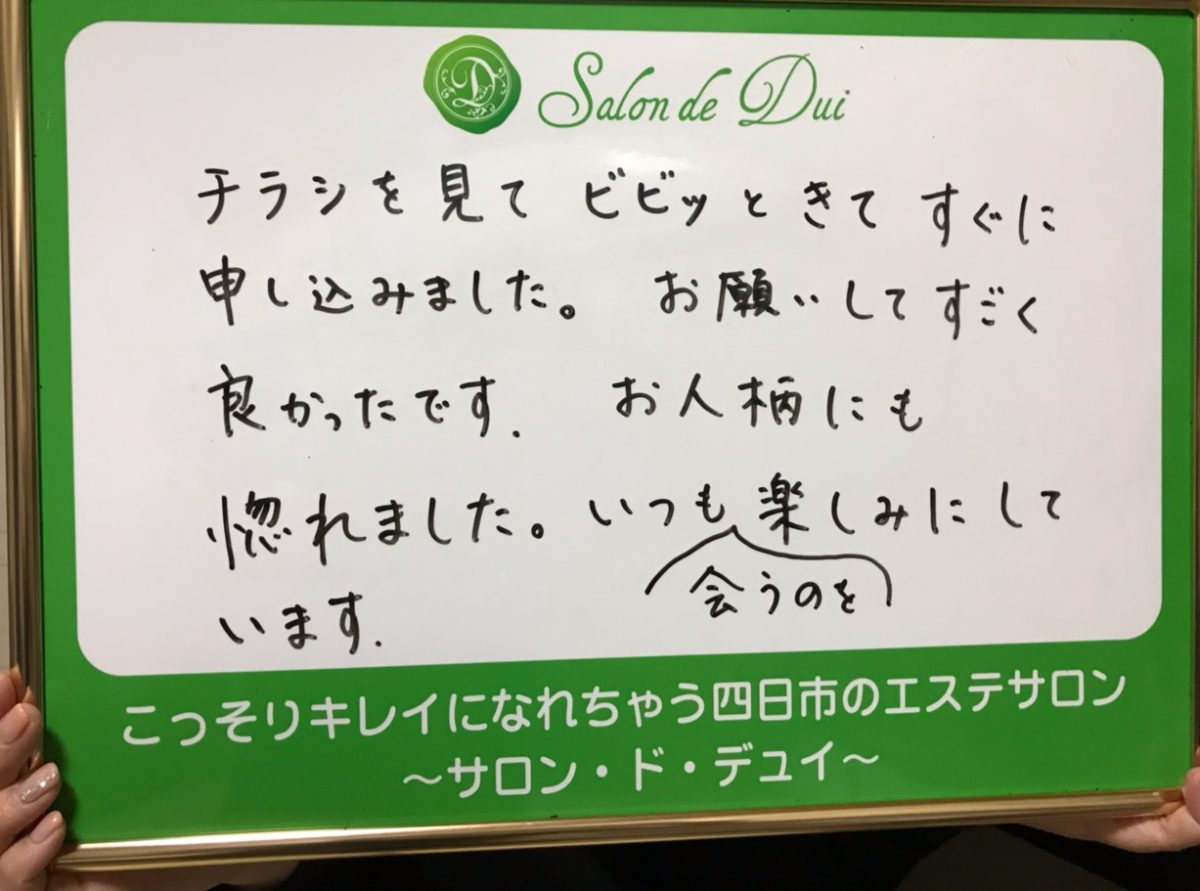 Salon de Dui
チラシを見て ビビッときて すぐに
申し込みました。 お願いしてすごく
良かったです. お人柄にも
惚れました。いつも楽しみにして
会うのを
います.
こっそりキレイになれちゃう四日市のエステサロン
～サロン・ド・デュイ～